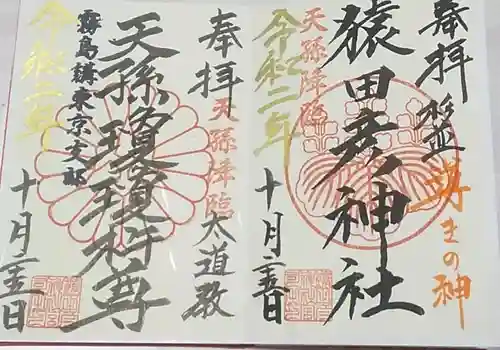 奉拝 盤
導きの神
猿田彦神社
天孫降臨
令和二年
十月二五日
奉拝
天孫降臨
太道教
天孫瓊瓊杵尊
霧島講東京支部
令和二年
十月二五日